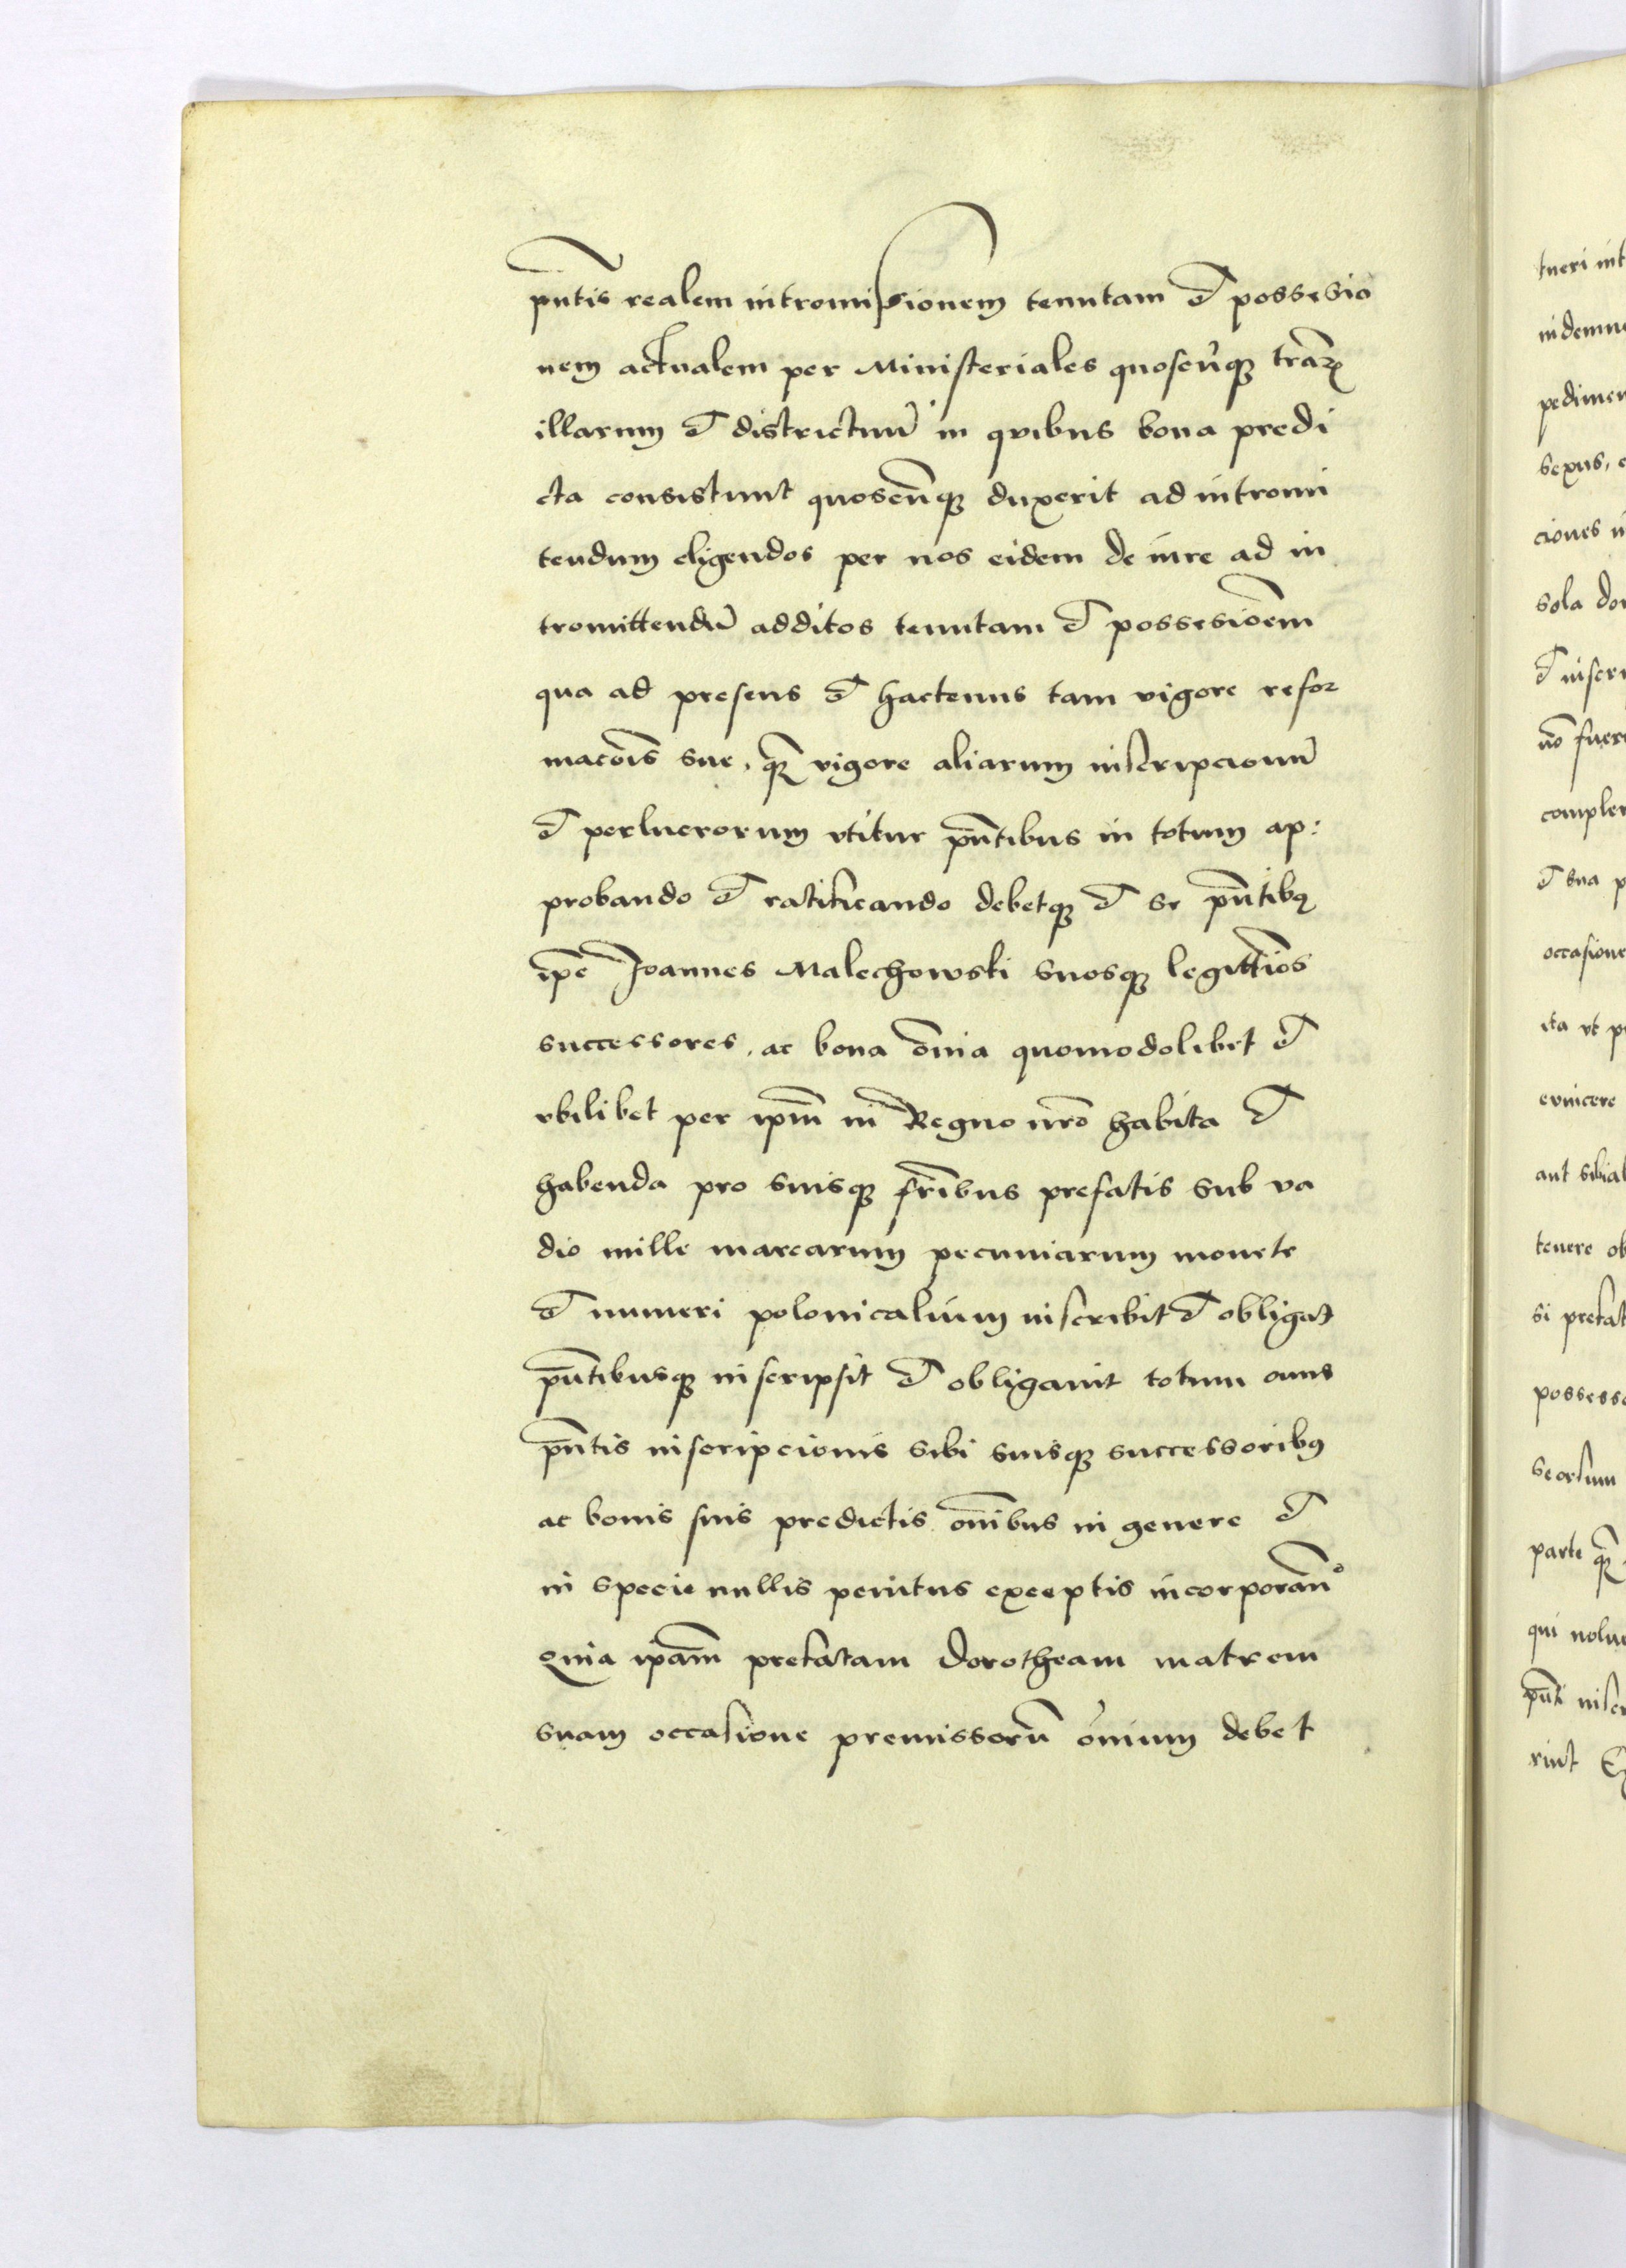 pntis realem intromissionem tenutam et possessio
nem actualem per Ministeriales quoscunq͡ꝫ trarꝝ
illarum et districtuū in quibus bona predi
cta consistunt quoscūqꝫ duxerit ad intromi
tendum eligendos per nos eidem de iure ad in
tromittendū additos tenutam et possessiōem
qua ad presens et hactenus tam vigore refor
macōis sue, qꝫ vigore aliarum inscripcionū
et perlucrorum vtitur pn̄tibus in totum ap:
probando et ratificando debetqꝫ et se pn̄tibꝰ
ip̄e Joannes Malechowski suosqꝫ legittīos
successores, ac bona ōnia quomodolibet et
vbilibet per ip̄m in Regno nr̄o habita et
habenda pro suisqꝫ fr̄ibus prefatis sub va
dio mille marcarum pecuniarum monete
et numeri polonicalium inscribit et obligat
pn̄tibusqꝫ inscripsit et obligauit totum onus
pn̄tis inscripcionis sibi suisqꝫ successoribꝰ
ac bonis suis predictis om̄ibus in genere et
in specie nullis penitus exceptis incorporān̊
Quia ip̄am prefatam Dorotheam matrem
suam occasione premissorū ōnium debet
tueri int
indemn
pedimen
sexus, e
ciones
sola do
et inscr
nō fuer
comple
et sua p
occasione
ita vt p
euincere
aut
tenere ob
si prefat
possess
seorsum
parte qꝫ
qui nolu
pn̄ti insc
rint